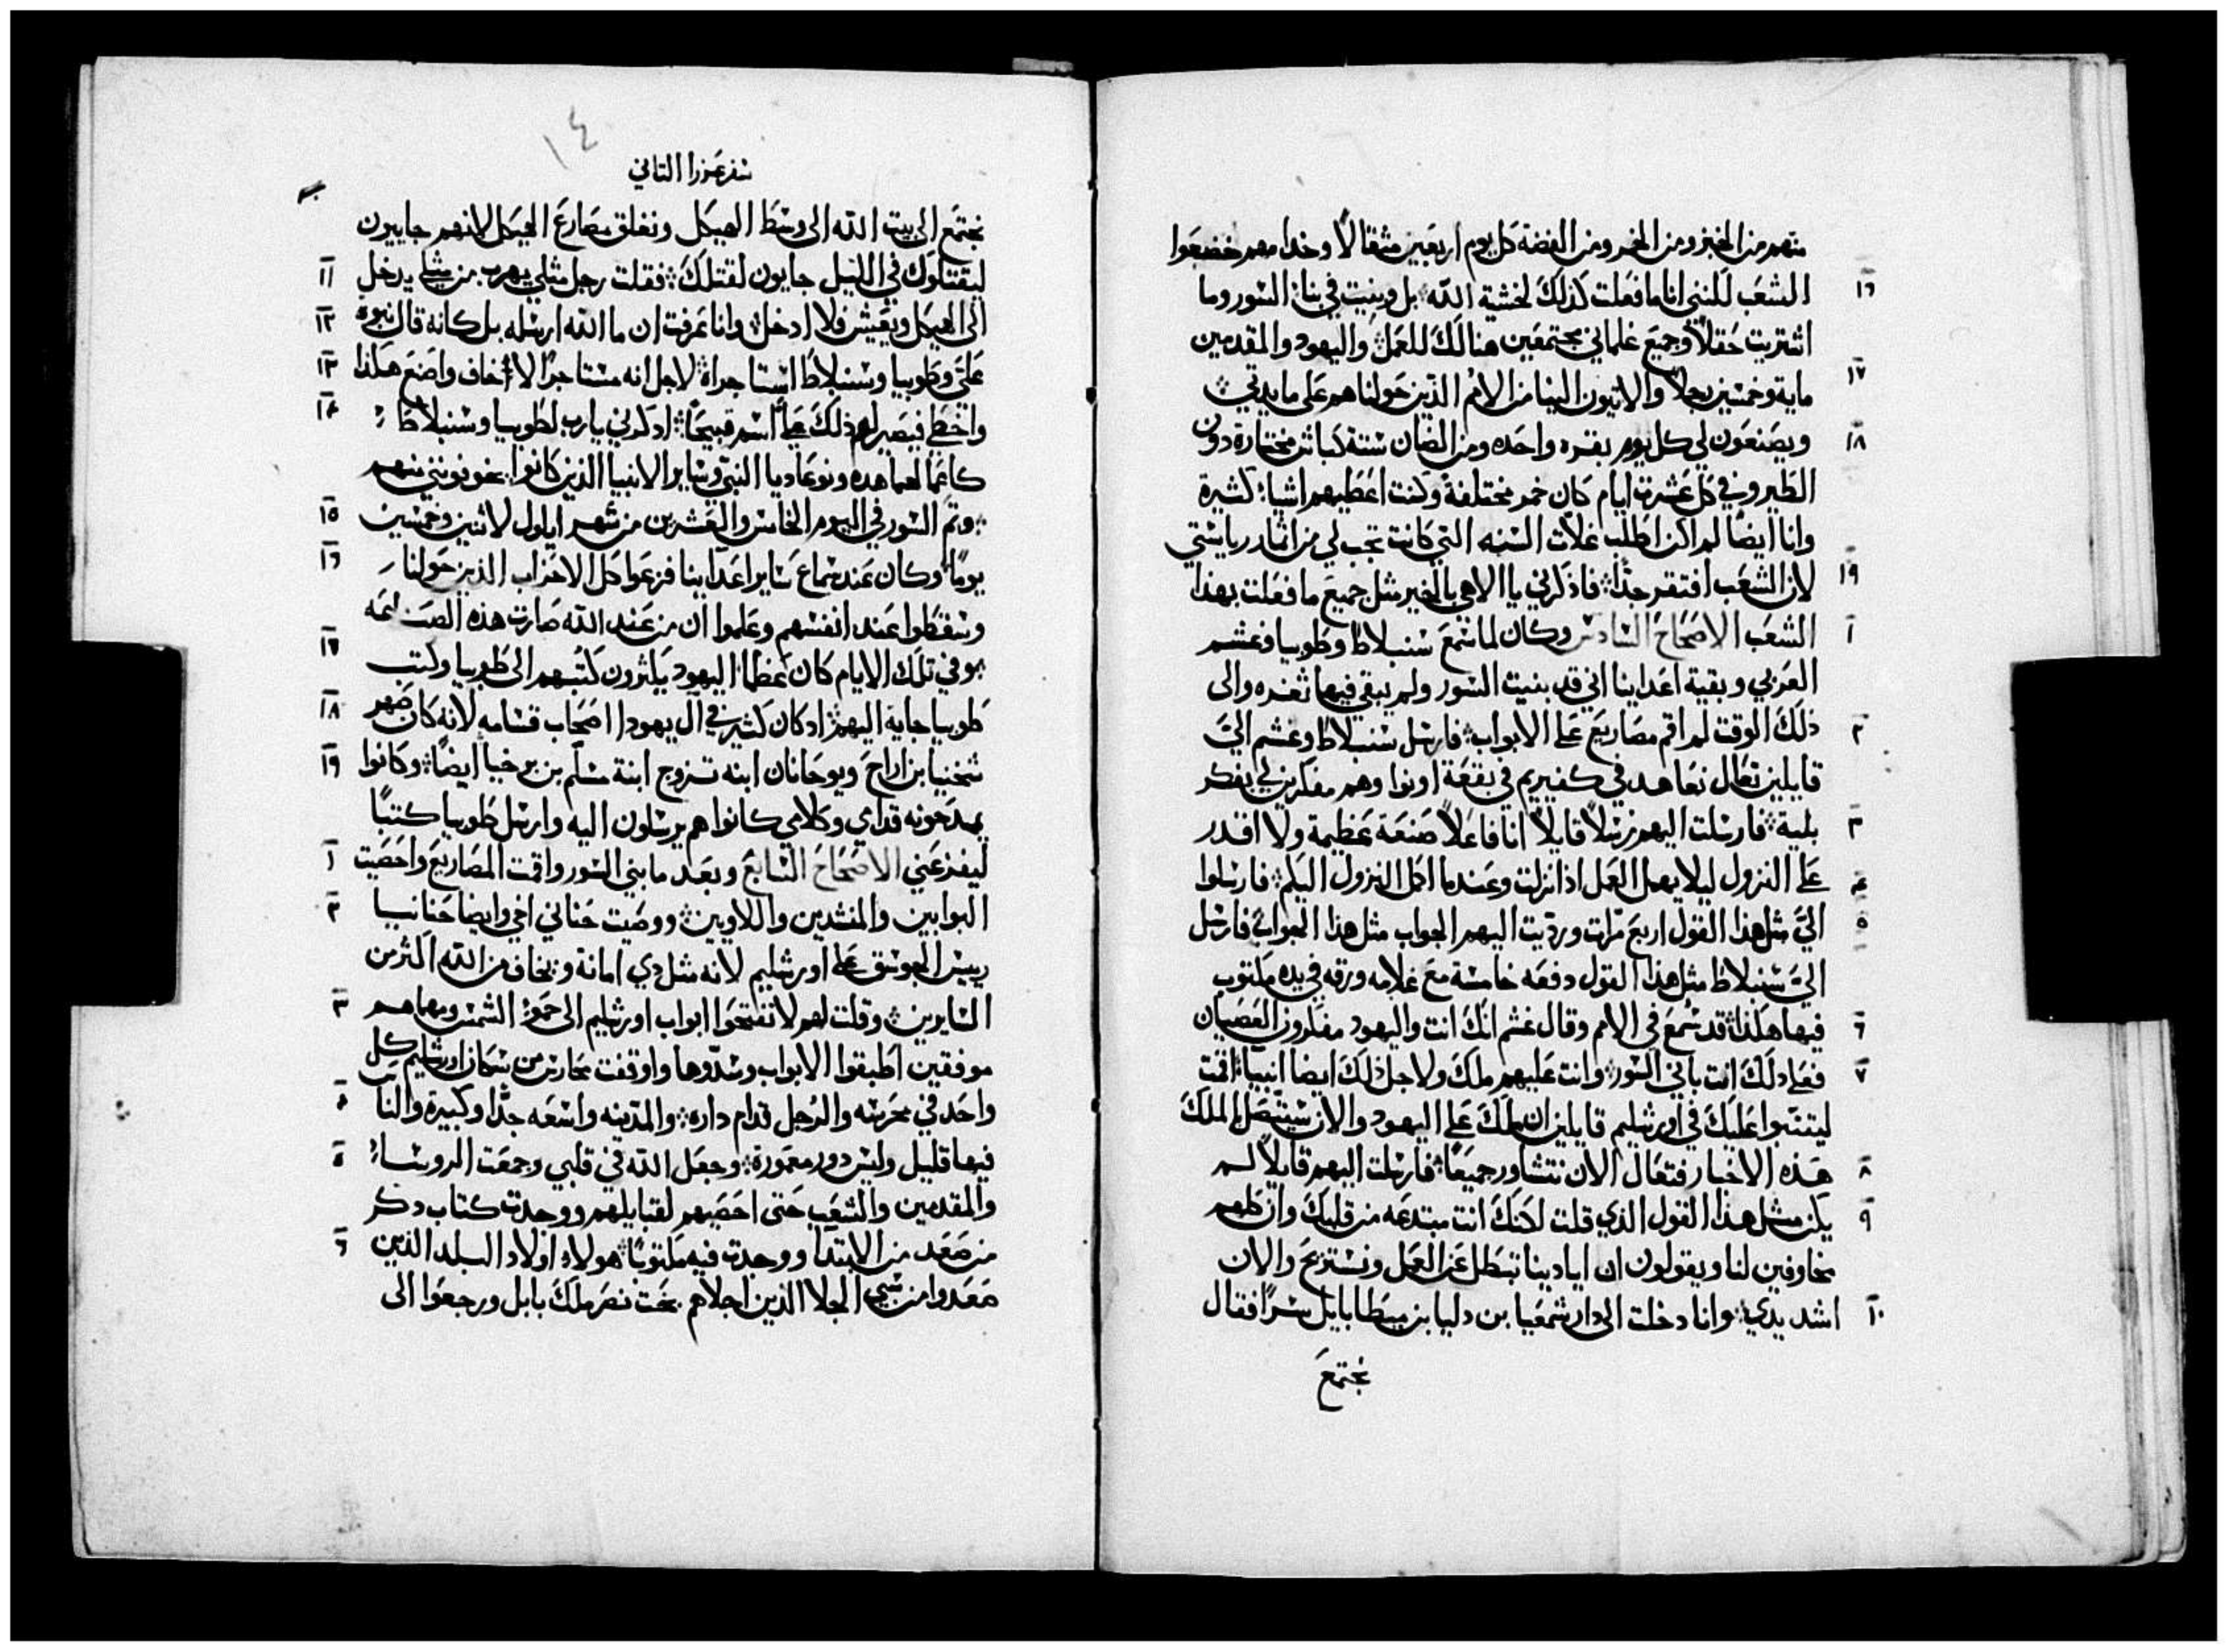 منهم من الخبز ومن الخمر ومن الفضة كل يوم اربعين مثقالاً وخدامهم خضعوا
١٦ الشعب للنني انا ما فعلت كذلك لخشية الله بل وبنيت في بنا السور وما
اشتريت حقلاً وجميع غلماني مجتمعين هنالك للعمل واليهود والمقدمين
١٧ ماية وخمسين رجلاً والاتيون الينا من الامم الذين حولنا هم على مايدتي
١٨ ويصنعون لي كل يوم بقره واحده ومن الضان ستة كباش مختارة دون
الطير وفي كل عشرت ايام كان خمر مختلفة وكنت اعطيهم اشيا كثيرة
وانا ايضاً لم اكن اطلب غلات السنه التي كانت تجب لي من اثمار رياستي
١٩ لان الشعب افتقر جداً فاذكرني يا الاهي بالخير مثل جميع ما فعلت بهذا
١ الشعب الاصحاح السادس وكان لما سمع سنبلاط وطوبيا وغشم
العربي وبقية اعداينا اني قد بنيت السور ولم يبقى فيها ثغره والى
٢ ذلك الوقت لم اقم مصاريع على الابواب فارسل سنبلاط وغشم اليَّ
قايلين تعال نعاهد في كفيريم في بقعة اونوا وهم مفكرين لي بفكر
٣ بلية فارسلت اليهم رسلاً قايلاً انا فاعلاً صنعة عظيمة ولا اقدر
٤ على النزول ليلا يهمل العمل اذا نزلت وعندما اكمل النزول اليكم فارسلوا
٥ اليَّ مثل هذا القول اربع مرّات ورديت اليهم الجواب مثل هذا الجواب فارسل
اليَّ سنبلاط مثل هذا القول دفعه خامسة مع غلامه ورقه في يده مكتوب
٦ فيها هكذا قد سُمع في الامم وقال غشم انك انت واليهود مفكرون العصيان
٧ فعلى ذلك انت باني السور وانت عليهم ملك ولاجل ذلك ايضا انبيا اقمت
ليتنبوا عليك في اورشليم قايلين ان ملك على اليهود والان سيتصل بالملك
٨ هذه الاخبار فتعال الان نتشاور جميعاً فارسلت اليهم قايلاً لم
٩ يكن مثل هذا القول الذي قلت لانك انت مبتدعه من قلبك وان كلهم
مخاوفين لنا ويقولون ان ايادينا تبطل عن العمل ونستريح والان
١٠ اشد يدي وانا دخلت الى دار شمعيا بن دليا بن ميطابايل سراً فقال
نجتمع
١٤
سفر عزرا التاني
نجتمع الى بيت الله الى وسط الهيكل ونغلق مصارع الهيكل لانهم جاييون
١١ ليقتلوك في الليل جايون لقتلك فقلت رجل مثلي يهرب من مثلي يدخل
١٢ الى الهيكل ويعيش فلا ادخل وانا عرفت ان ما الله ارسله بل كانه قال نبوه
١٣ عليَّ وطوبيا وسنبلاط استاجراه لاجل انه مستاجراً لا أخاف واصنع هكذا
١٤ واخطي فيصير لهم ذلك على اسم قبيحاً ادكرني يارب لطوبيا وسنبلاط
كاعمالهما هده ونوعاديا النبي وساير الانبيا الذين كانوا يخوفونني منهم
١٥ وتم السور في اليوم الخامس والعشرين من شهر ايلول لاثنين وخمسين
١٦ يوماً وكان عند سماع ساير اعداينا فزعوا كل الاحزاب الذين حولنا
وسقطوا عند انفسهم وعلموا ان من عند الله صارت هذه الصناعه
١٧ وفي تلك الايام كان عظما اليهود يكثرون كتبهم الى طوبيا وكتب
١٨ طوبيا جاية اليهم ادكان كثير في آل يهودا اصحاب قسامه لانه كان صهر
١٩ شخنيا بن اراح ويوحانان ابنه تزوج ابنة مسلم بن برخيا ايضاً وكانوا
يمدحونه قدامي وكلامي كانوا هم يرسلون اليه وارسل طوبيا كتباً
١ ليفزعني الاصحاح السابع وبعد ما بني السور واقمت المصاريع واحصيت
٢ البوابين والمنشدين واللاويين ووصيت حناني اخي وايضا حنانيا
رييس الجوسق على اورشليم لانه مثل دي امانة ويخاف من الله اكثر من
٣ السايرين وقلت لهم لا تفتحوا ابواب اورشليم الى حموّ الشمس ومهما هم
موفقين اطبقوا الابواب وسدّوها واوقفت محارس من سكان اورشليم كل
٤ واحد في محرسه والرجل قدام داره والمدينه واسعه جدّاً وكبيرة والناس
٥ فيها قليل وليس دور معمورة وجعل الله في قلبي وجمعت الروسا
والمقدمين والشعب حتى احصيهم لقبايلهم ووجدت كتاب دكر
٦ من صعد من الابتدا ووجدت فيه مكتوباً هولاء اولاد البلد الذين
صعدوا من سبي الجلا الذين اجلاهم بخت نصر ملك بابل ورجعوا الى